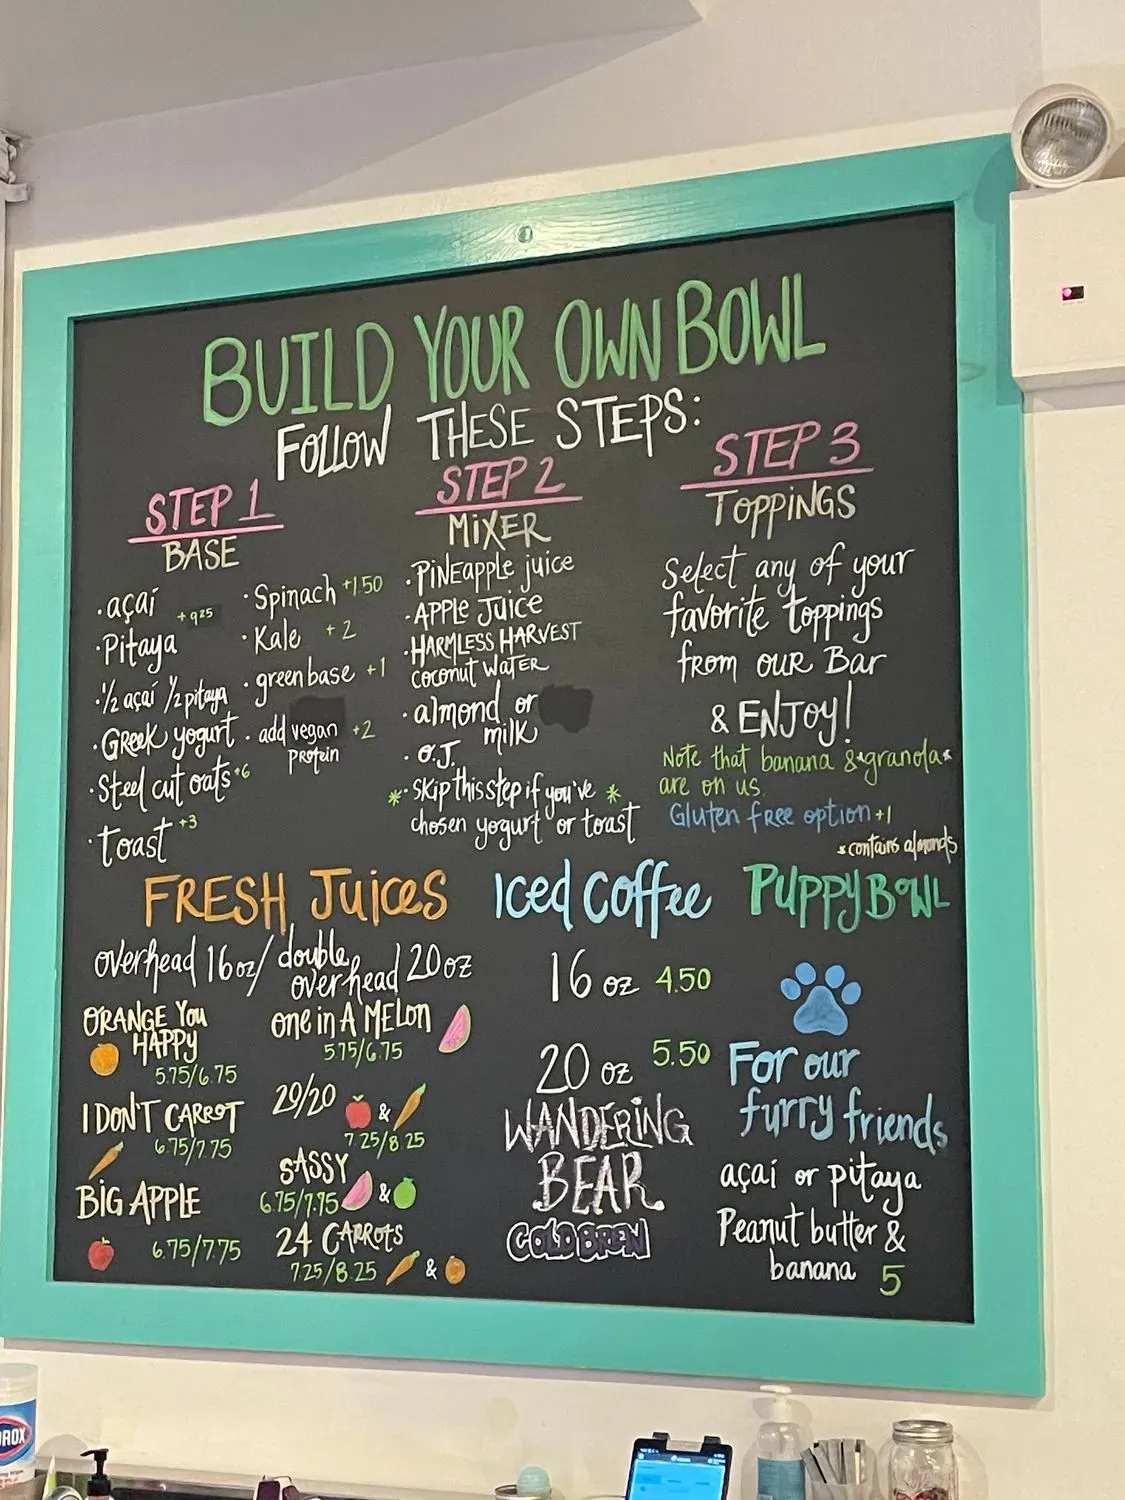 BUILD YOUR OWN BOWL
FOLLOW THESE STEPS:
STEP 1
BASE
·açaí
+9.25
Pitaya
·½ açaí ½ pitaya
·Greek yogurt
·Steel cut oats +6
·Toast +3
·Spinach +1.50
·Kale +2
·green base +1
·add vegan +2
protein
STEP 2
MIXER
·PINEapple juice
·APPLE JUICE
·HARMLESS HARVEST
coconut WATER
·almond or
milk
·O.J.
*·SKIP this step if you've *
chosen yogurt or toast
STEP 3
TOPPINGS
Select any of your
favorite toppings
from our Bar
& ENJOY!
Note that banana &*granola*
are on us.
Gluten free option +1
*contains almonds
FRESH JUICES
overhead 16oz/ double
overhead 20oz
ORANGE YOU
HAPPY
5.75/6.75
I DON'T CARROT
6.75/7.75
BIG APPLE
6.75/7.75
one in A MELON
5.75/6.75
20/20
&
7.25/8.25
SASSY
6.75/7.75 &
24 CARROTS
7.25/8.25 &
ICED COFFEE
16 oz 4.50
20 oz 5.50
WANDERING
BEAR
COLD BREW
PUPPY BOWL
For our
furry friends
açaí or pitaya
Peanut butter &
banana 5
OROX